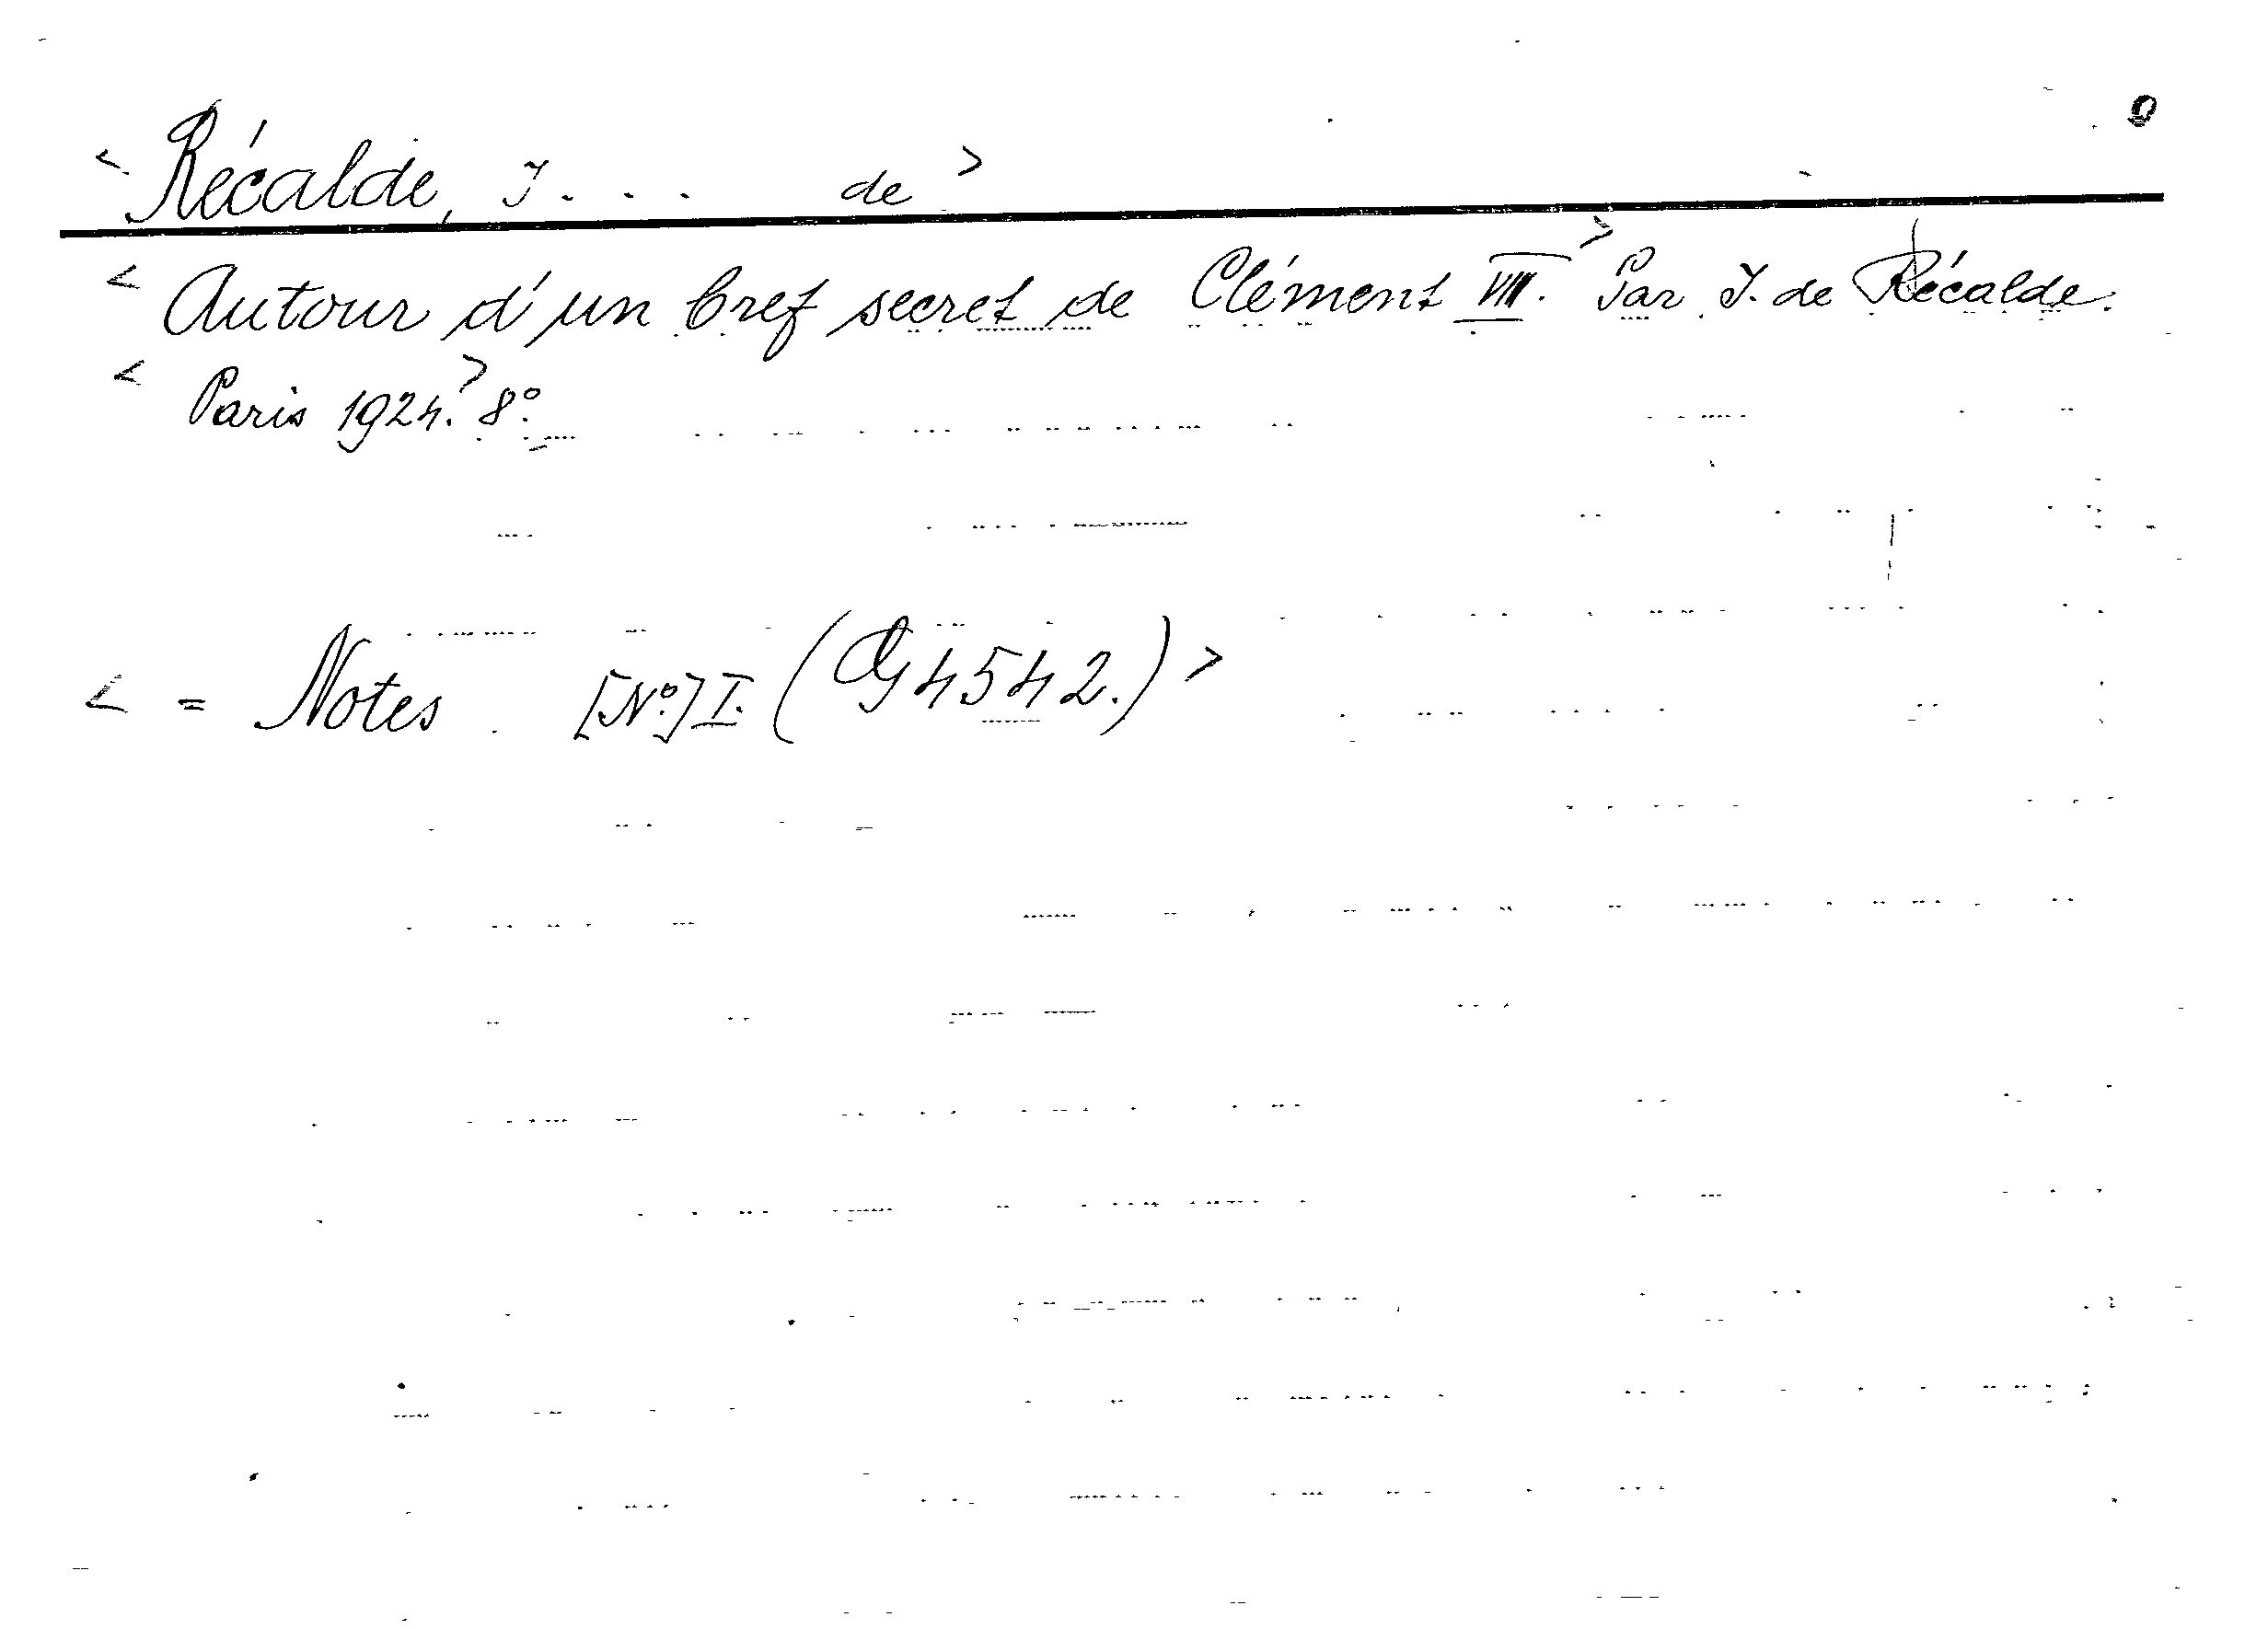 < Récalde, I... de >
< Autour d'un bref secret de Clément VIII. > Par I. de Récalde.
< Paris 1924. > 8°.
< = Notes. [N°] I. (G 4542.) >